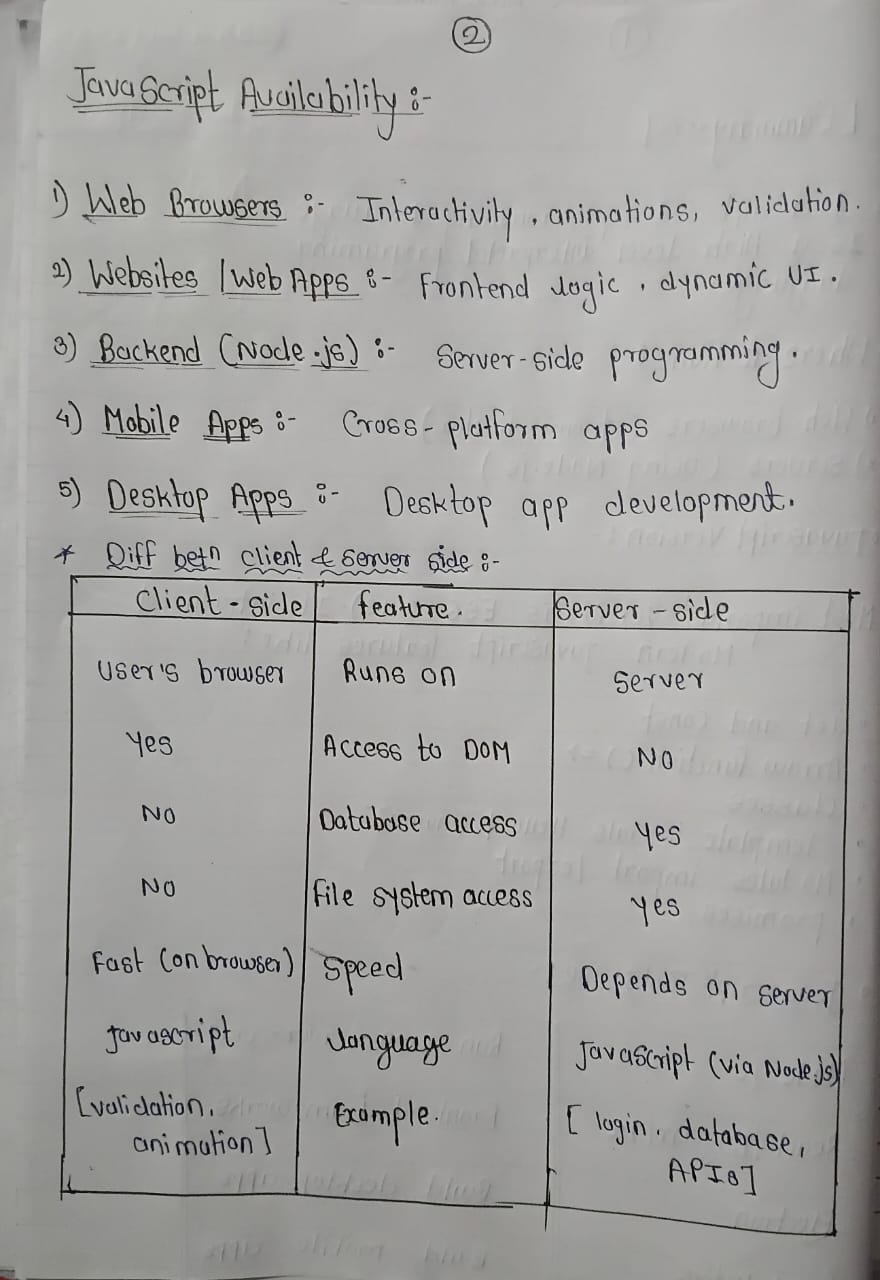 2
JavaScript Availability :-
1) Web Browsers :- Interactivity, animations, validation.
2) Websites / Web Apps :- Frontend logic, dynamic UI.
3) Backend (Node.js) :- Server-side programming.
4) Mobile Apps :- Cross-platform apps
5) Desktop Apps :- Desktop app development.
* Diff betn client & server side :-
Client-side feature. Server-side
User's browser Runs on Server
Yes Access to DOM NO
NO Database access Yes
NO File system access Yes
Fast (on browser) Speed Depends on server
Javascript language Javascript (via Node.js)
[validation, Example. [login, database,
animation] APIs]